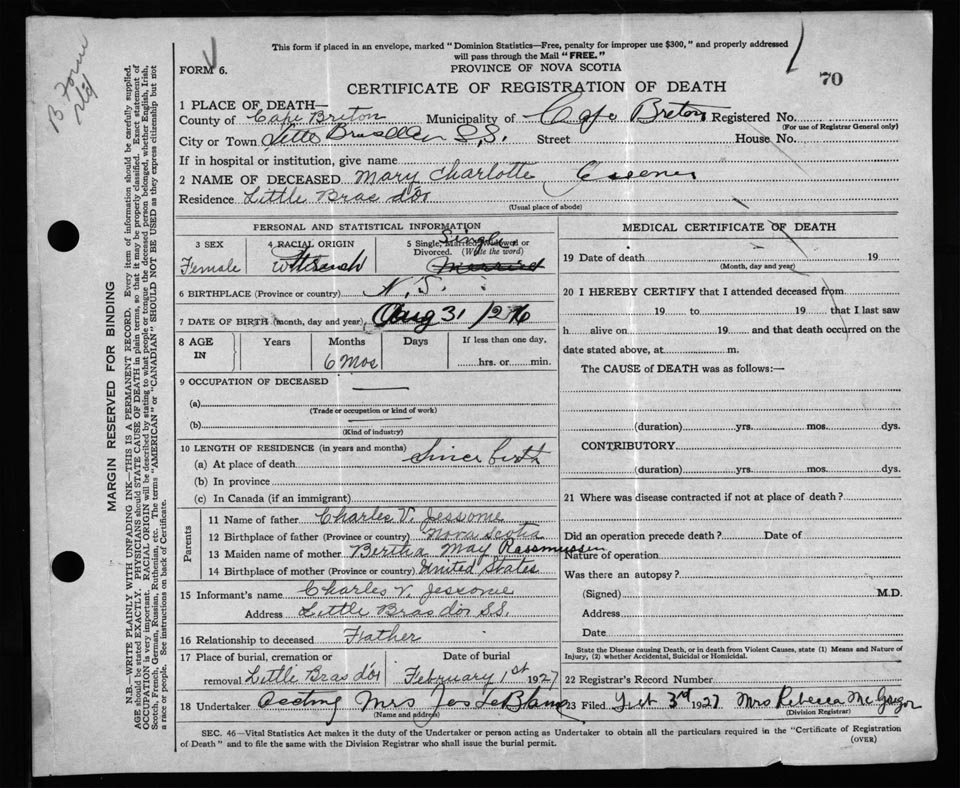 B Form
This form if placed in an envelope, marked "Dominion Statistics—Free, penalty for improper use $300," and properly addressed
will pass through the Mail "FREE."
FORM 6.
PROVINCE OF NOVA SCOTIA
70
CERTIFICATE OF REGISTRATION OF DEATH
1 PLACE OF DEATH—
County of Cape Breton Municipality of Cape Breton Registered No.
(For use of Registrar General only)
City or Town S.S. Street House No.
If in hospital or institution, give name
2 NAME OF DECEASED Mary Charlotte
Residence Little Bras d'or
(Usual place of abode)
PERSONAL AND STATISTICAL INFORMATION
3 SEX
Female
4 RACIAL ORIGIN
French
5 Single, Married, Widowed or
Divorced. (Write the word)
Single
Married
6 BIRTHPLACE (Province or country) N.S.
7 DATE OF BIRTH (month, day and year) Aug 31
8 AGE IN Years Months Days If less than one day,
6 Mos hrs. or min.
9 OCCUPATION OF DECEASED
(a)
(Trade or occupation or kind of work)
(b)
(Kind of industry)
10 LENGTH OF RESIDENCE (in years and months)
(a) At place of death Since birth
(b) In province
(c) In Canada (if an immigrant)
Parents
11 Name of father Charles V. Jessome
12 Birthplace of father (Province or country) Nova Scotia
13 Maiden name of mother Bertha May Rassmussen
14 Birthplace of mother (Province or country) United States
15 Informant's name Charles V. Jessome
Address Little Bras d'or S.S.
16 Relationship to deceased Father
17 Place of burial, cremation or Date of burial
removal Little Bras d'or February 1st 1927
18 Undertaker Acting Mrs Jos LeBlanc
(Name and address)
MEDICAL CERTIFICATE OF DEATH
19 Date of death 19
(Month, day and year)
20 I HEREBY CERTIFY that I attended deceased from
19 to 19 that I last saw
h alive on 19 and that death occurred on the
date stated above, at m.
The CAUSE of DEATH was as follows:—
(duration) yrs. mos. dys.
CONTRIBUTORY
(duration) yrs. mos. dys.
21 Where was disease contracted if not at place of death?
Did an operation precede death? Date of
Nature of operation
Was there an autopsy?
(Signed) M.D.
Address
Date
State the Disease causing Death, or in death from Violent Causes, state (1) Means and Nature of
Injury, (2) whether Accidental, Suicidal or Homicidal.
22 Registrar's Record Number
23 Filed Feb 3rd 1927 Mrs Rebecca McGregor
(Division Registrar)
SEC. 46—Vital Statistics Act makes it the duty of the Undertaker or person acting as Undertaker to obtain all the particulars required in the "Certificate of Registration
of Death" and to file the same with the Division Registrar who shall issue the burial permit.
(OVER)
MARGIN RESERVED FOR BINDING
N.B.—WRITE PLAINLY WITH UNFADING INK—THIS IS A PERMANENT RECORD. Every item of information should be carefully supplied.
AGE should be stated EXACTLY. PHYSICIANS should STATE CAUSE OF DEATH in plain terms, so that it may be properly classified. Exact statement of
OCCUPATION is very important. RACIAL ORIGIN will be described by stating to what people or tongue the deceased person belonged, whether English, Irish,
Scotch, French, German, Russian, Ruthenian, etc. The terms "AMERICAN" or "CANADIAN" SHOULD NOT BE USED as they express citizenship but not
a race or people. See instructions on back of Certificate.